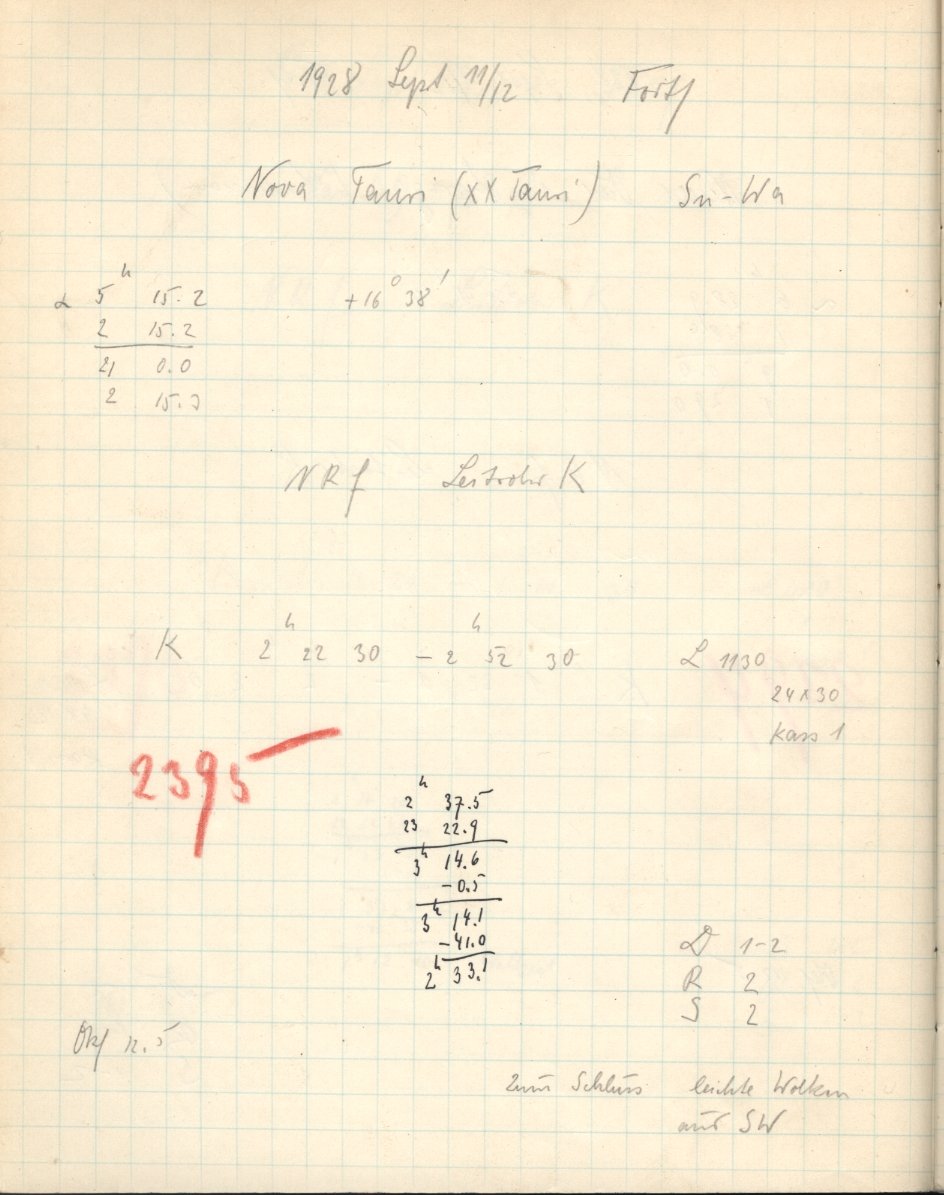 1928 Sept 11/12 Forts
Nova Tauri (XX Tauri) Sn-Wa
α 5h 15.2 +16° 38'
2 15.2
21 0.0
2 15.3
NRf Leitrohr K
K 2h 22 30 – 2h 52 30 L 1130
24x30
Kass 1
2395
2h 37.5
23 22.9
3h 14.6
-0.5
3h 14.1
-41.0
2h 33.1
D 1-2
R 2
S 2
12.5
zum Schluss leichte Wolken
aus SW